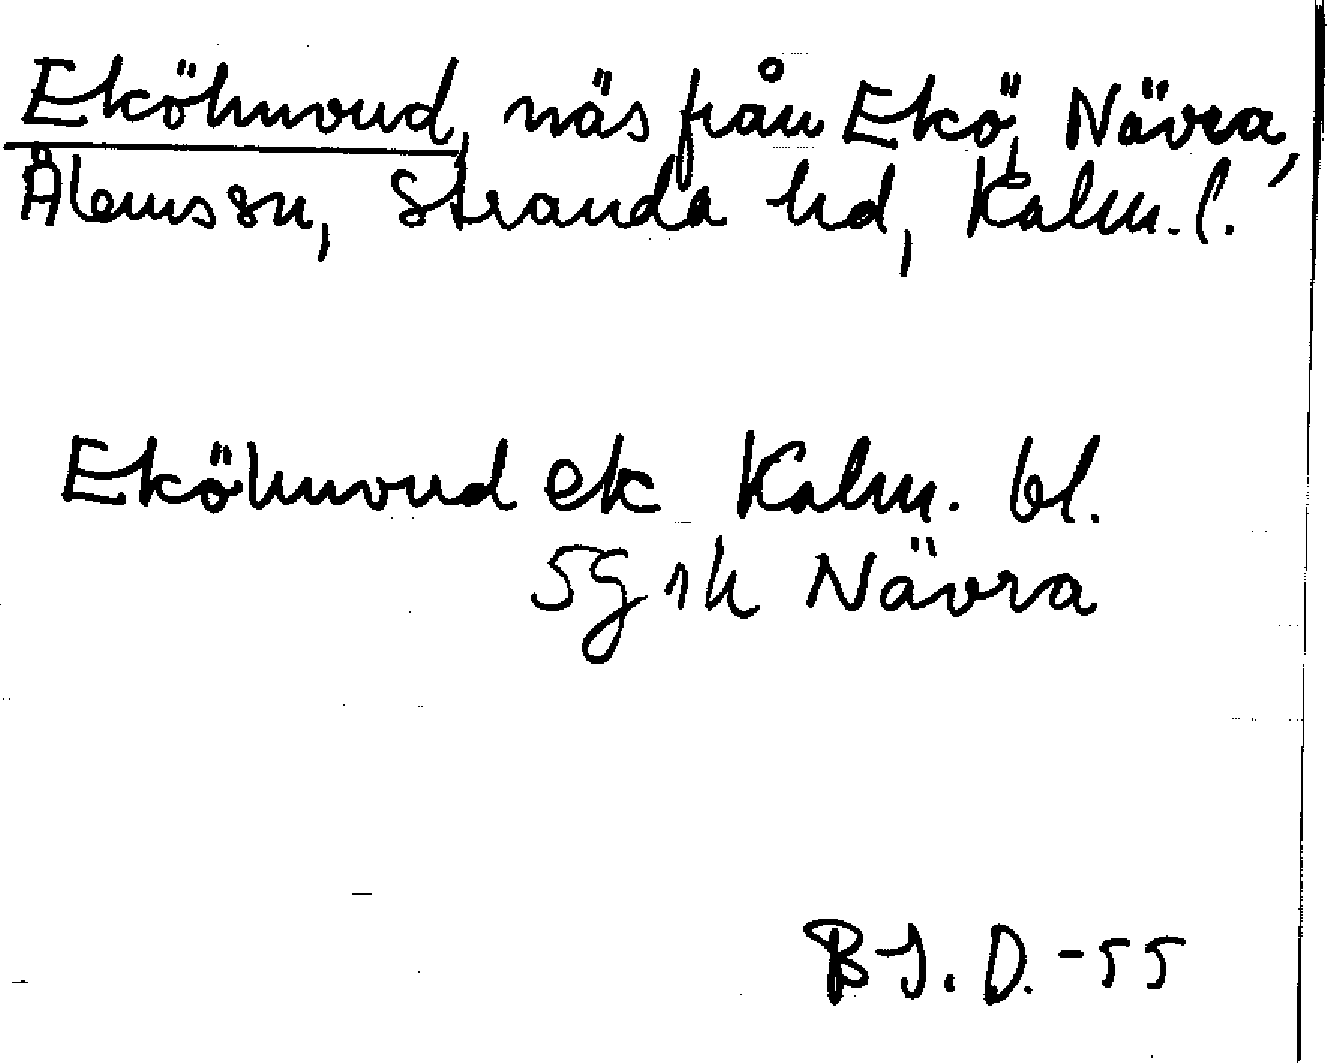 Eköhuvud, näs från Ekö, Nävra,
Ålems sn, Stranda hd, Kalm. l.
Eköhuvud ek Kalm. bl.
5g 1h Nävra
B J. D. -55